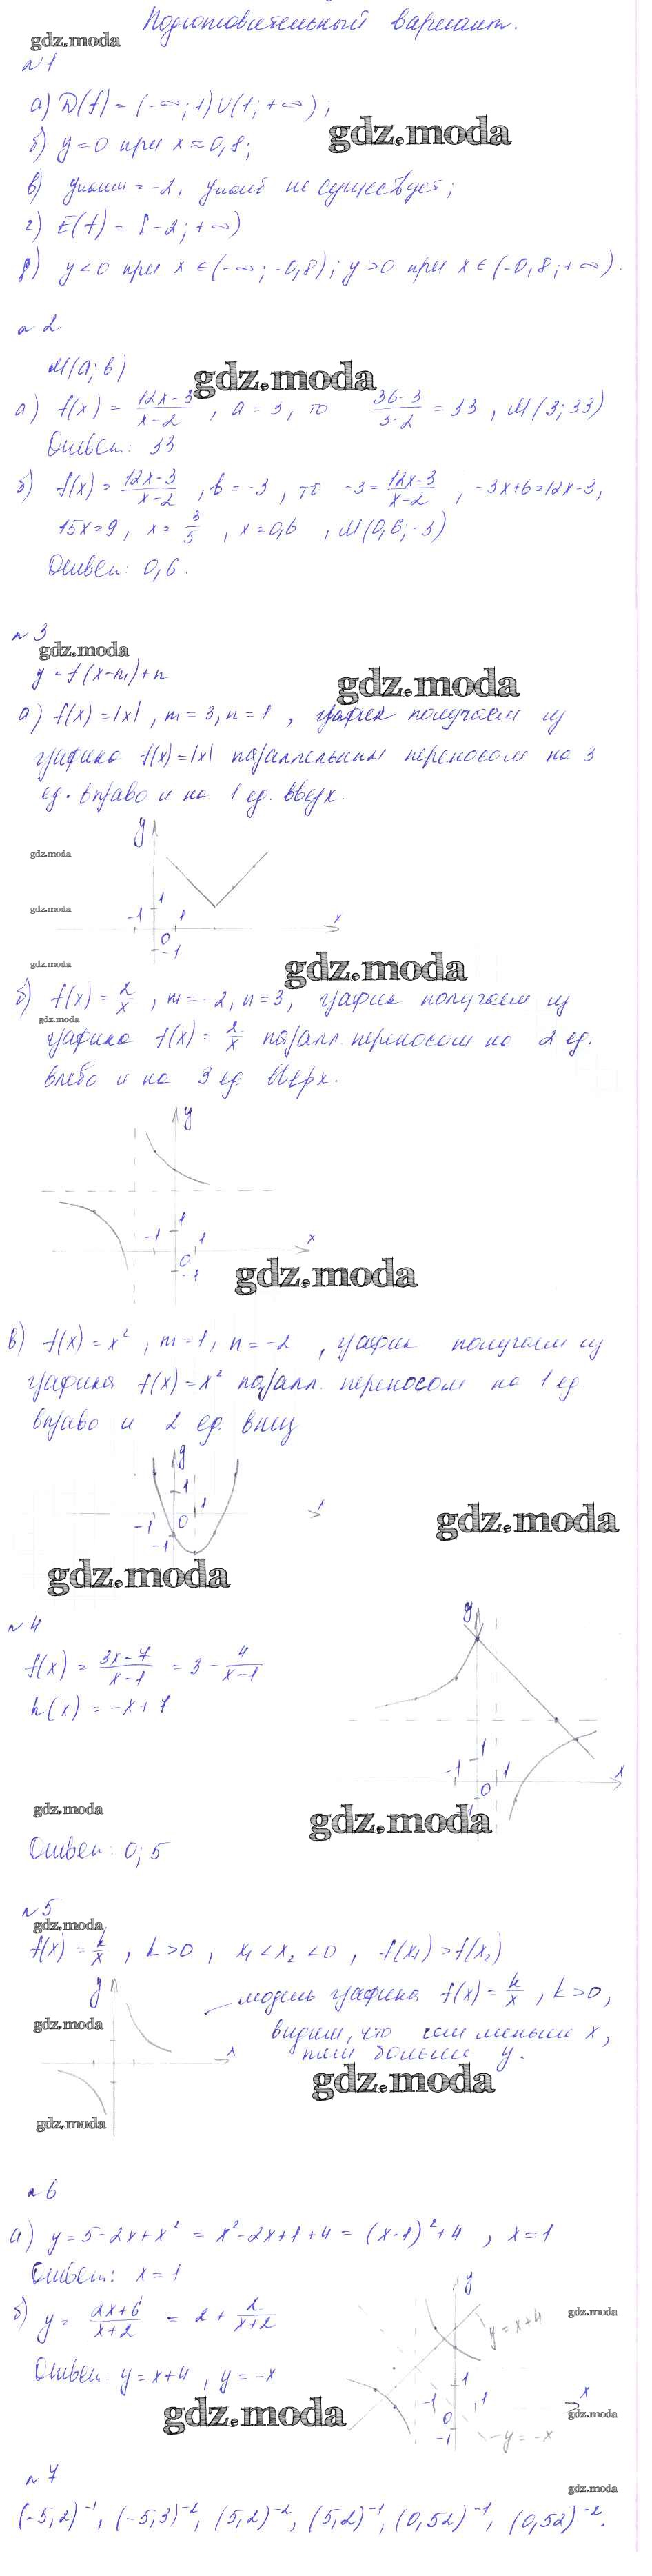 Подготовительный вариант.
gdz.moda
№1
а) D(f) = (-∞; 1)∪(1; +∞);
gdz.moda
б) y = 0 при x ≈ 0,8;
в) yнаим = -2, yнаиб не существует;
г) E(f) = [-2; +∞)
д) y < 0 при x ∈ (-∞; -0,8); y > 0 при x ∈ (-0,8; +∞).
№2
M(a; b)
gdz.moda
а) f(x) = (12x-3)/(x-2), a = 3, то (36-3)/(3-2) = 33, M(3; 33)
Ответ: 33
б) f(x) = (12x-3)/(x-2), b = -3, то -3 = (12x-3)/(x-2), -3x+6 = 12x-3,
15x = 9, x = 3/5, x = 0,6, M(0,6; -3)
Ответ: 0,6.
№3
gdz.moda
y = f(x-m)+n
gdz.moda
а) f(x) = |x|, m = 3, n = 1, график получаем из
графика f(x) = |x| параллельным переносом на 3
ед. вправо и на 1 ед. вверх.
y
gdz.moda
gdz.moda
-1 1 1 x
0
-1
gdz.moda
gdz.moda
б) f(x) = 2/x, m = -2, n = 3, график получаем из
gdz.moda
графика f(x) = 2/x паралл. переносом на 2 ед.
влево и на 3 ед. вверх.
y
-1 1 1 x
0
-1
gdz.moda
в) f(x) = x², m = 1, n = -2, график получаем из
графика f(x) = x² паралл. переносом на 1 ед.
вправо и 2 ед. вниз
y
1
-1 0 1 x
-1
gdz.moda
gdz.moda
№4
y
f(x) = (3x-7)/(x-1) = 3 - 4/(x-1)
h(x) = -x+7
-1 1 1 x
0
gdz.moda
gdz.moda
Ответ: 0; 5
№5
gdz.moda
f(x) = k/x, k > 0, x₁ < x₂ < 0, f(x₁) > f(x₂)
y
модель графика f(x) = k/x, k > 0,
gdz.moda
видим, что чем меньше x,
x
тем больше y.
gdz.moda
gdz.moda
№6
а) y = 5-2x+x² = x²-2x+1+4 = (x-1)²+4, x = 1
Ответ: x = 1
y
б) y = (2x+6)/(x+2) = 2 + 2/(x+2)
gdz.moda
y = x+4
Ответ: y = x+4, y = -x
-1 1 1 x
0
-1
gdz.moda
gdz.moda
y = -x
№7
gdz.moda
(-5,2)⁻¹, (-5,3)⁻², (5,2)⁻², (5,2)⁻¹, (0,52)⁻¹, (0,52)⁻².